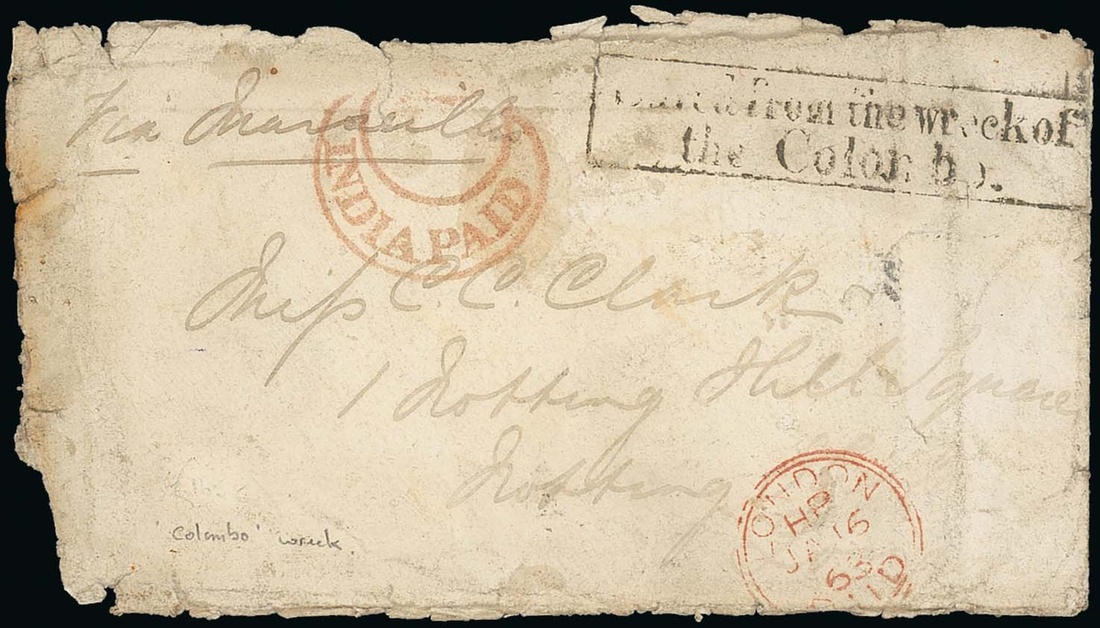 Via Marseilles
INDIA PAID
from the wreck of
the Colombo.
Miss C. C. Clark
1 Notting Hill Square
Notting
LONDON
HP
JA 16
63
PAID
'Colombo' wreck.